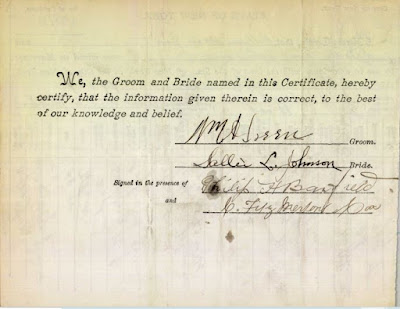 We, the Groom and Bride named in this Certificate, hereby
certify, that the information given therein is correct, to the best
of our knowledge and belief.
Wm H Green Groom.
Sallie L. Johnson Bride.
Signed in the presence of Philip H Banfield
and C. Fitz